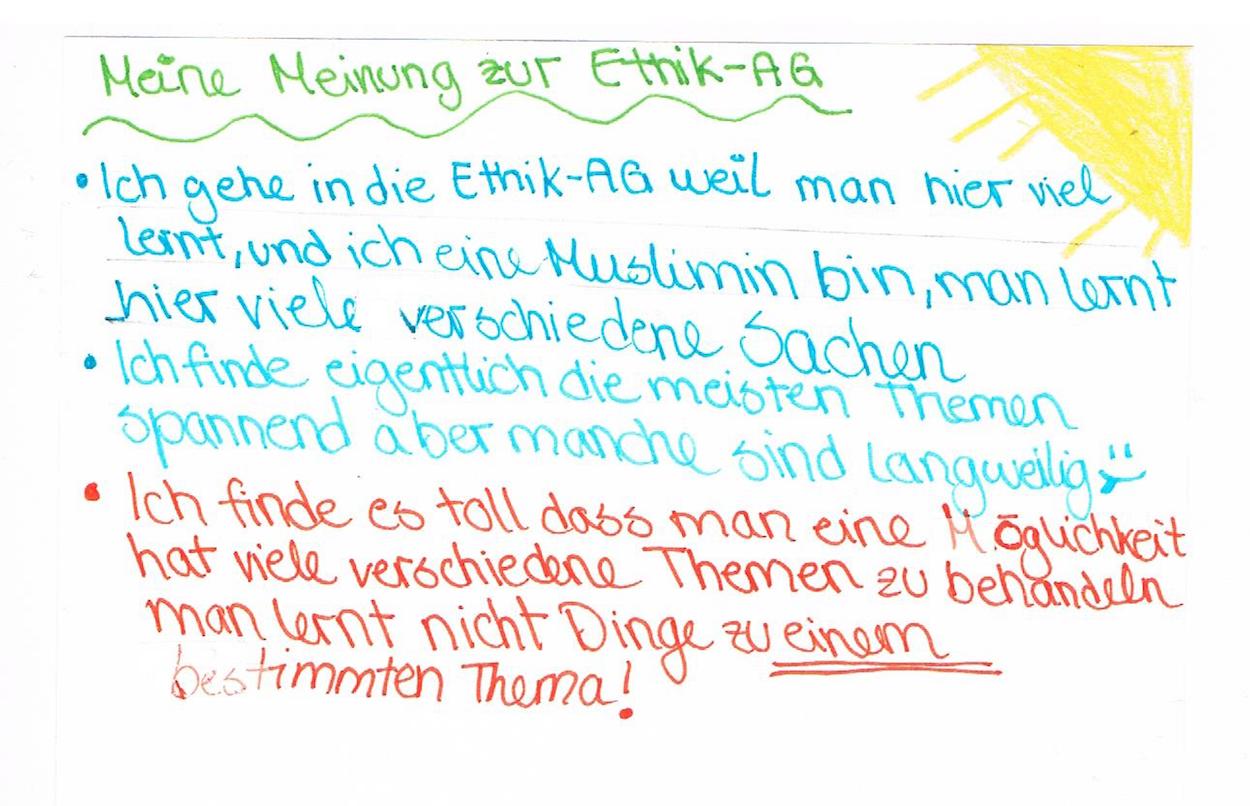 Meine Meinung zur Ethik-AG
• Ich gehe in die Ethik-AG weil man hier viel
lernt, und ich eine Muslimin bin, man lernt
hier viele verschiedene Sachen
• Ich finde eigentlich die meisten Themen
spannend aber manche sind langweilig
• Ich finde es toll dass man eine Möglichkeit
hat viele verschiedene Themen zu behandeln
man lernt nicht Dinge zu einem
bestimmten Thema!